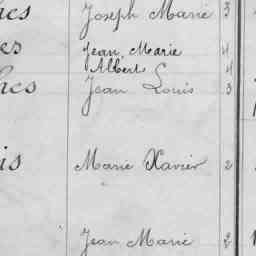 hes Joseph Marie 3
es Jean Marie 4
Albert 4
hes Jean Louis 3
is Marie Xavier 2
Jean Marie 2